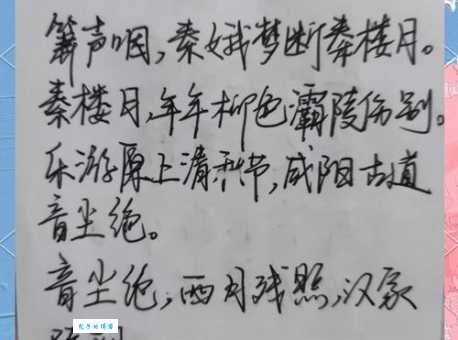 箫声咽，秦娥梦断秦楼月。
秦楼月，年年柳色灞陵伤别。
乐游原上清秋节，咸阳古道
音尘绝。
音尘绝，西月残照，汉家